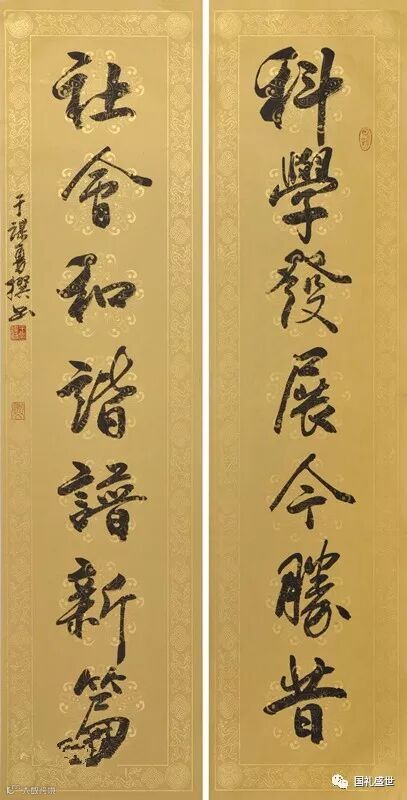 科學發展今勝昔
社會和諧譜新篇
于謀勇撰书
国礼盛世